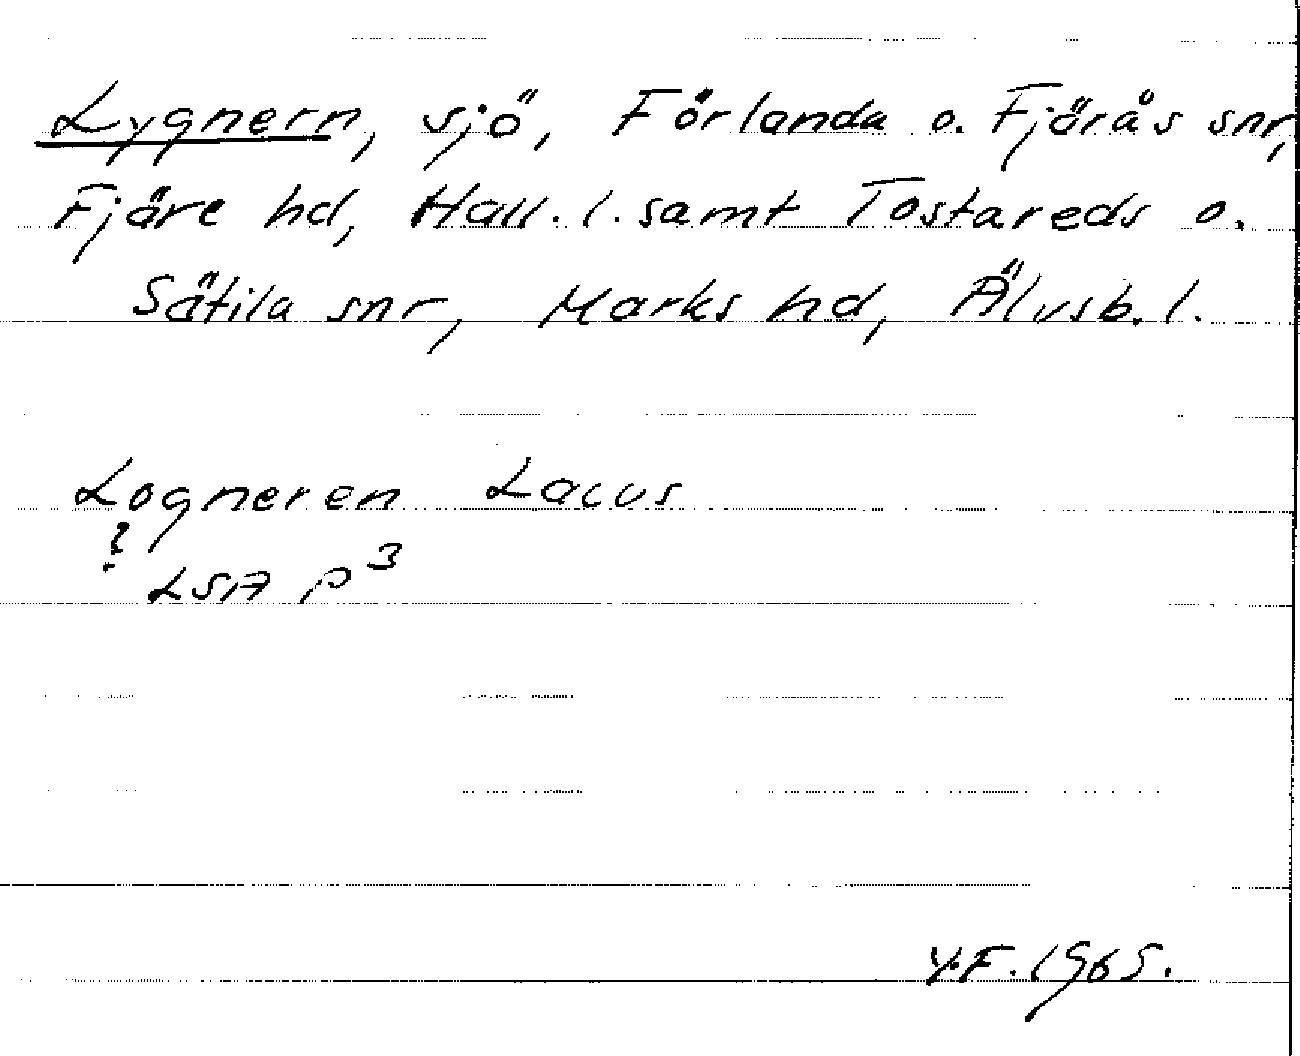 Lygnern, sjö, Förlanda o. Fjärås snr,
Fjäre hd, Hall. l. samt Tostareds o.
Sätila snr, Marks hd, Älvsb. l.
Logneren Lacus
?
LSA P 3
Y.F. 1965.